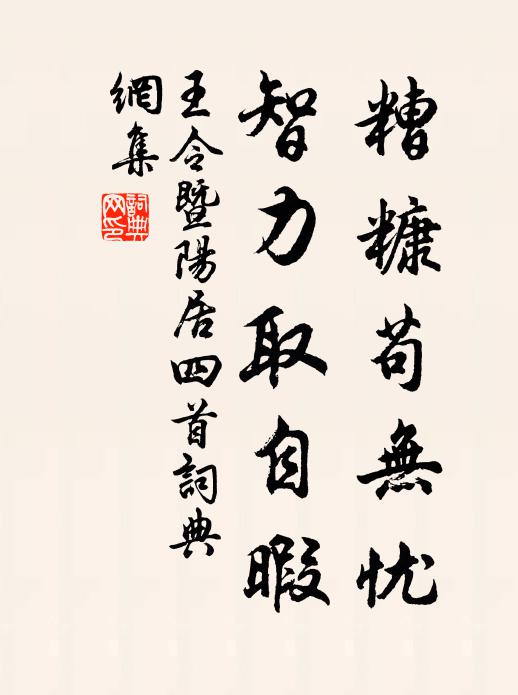 糟糠苟無忧
智力取自暇
王令暨陽居四首詞典
網集
詞典網印